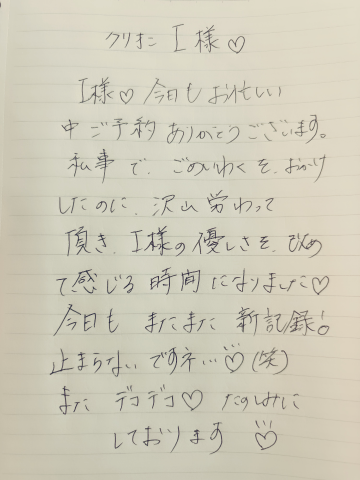 クリオネ I様♡
I様♡今日もお忙しい
中ご予約ありがとうございます。
私事で、ごめいわくを、おかけ
したのに、沢山労わって
頂き、I様の優しさを、改め
て感じる時間になりました♡
今日もまたまた新記録!
止まらないですネ…♡(笑)
またデコデコ♡たのしみに
しております♡